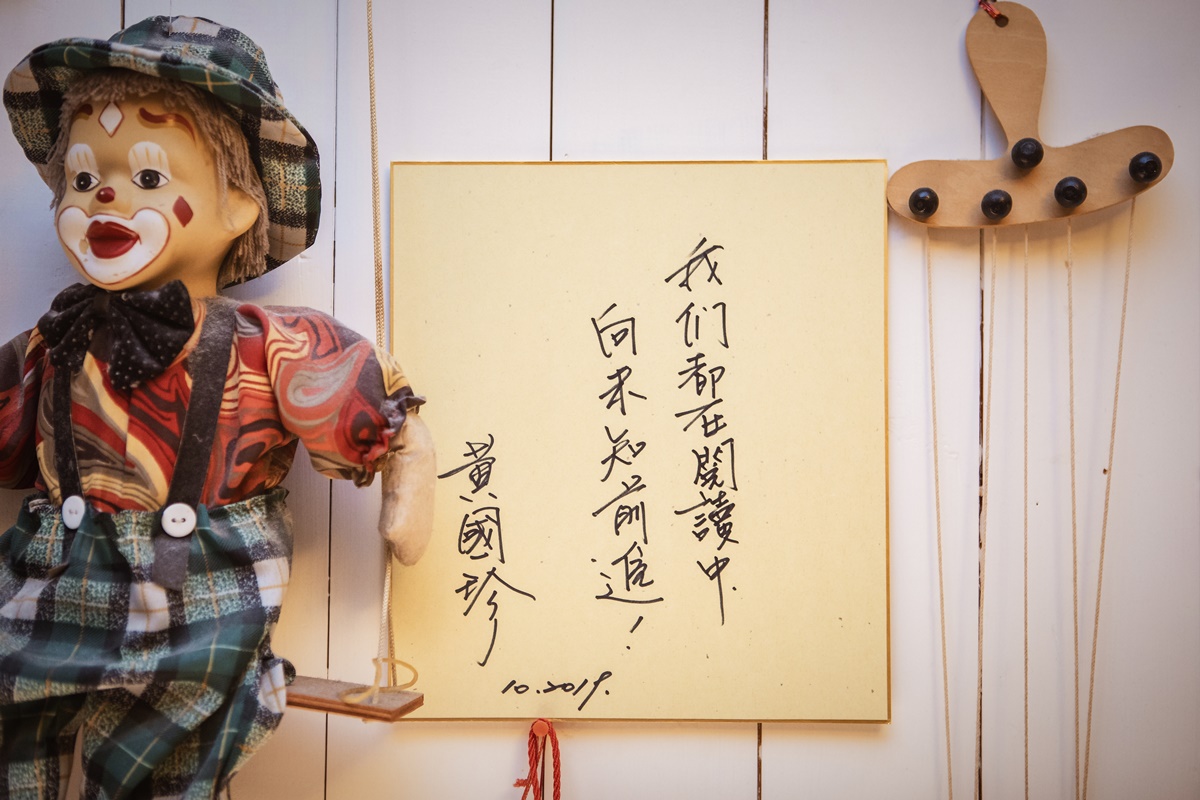 我们都在閱讀中.
向未知前進!
黃國珍
10.2019.